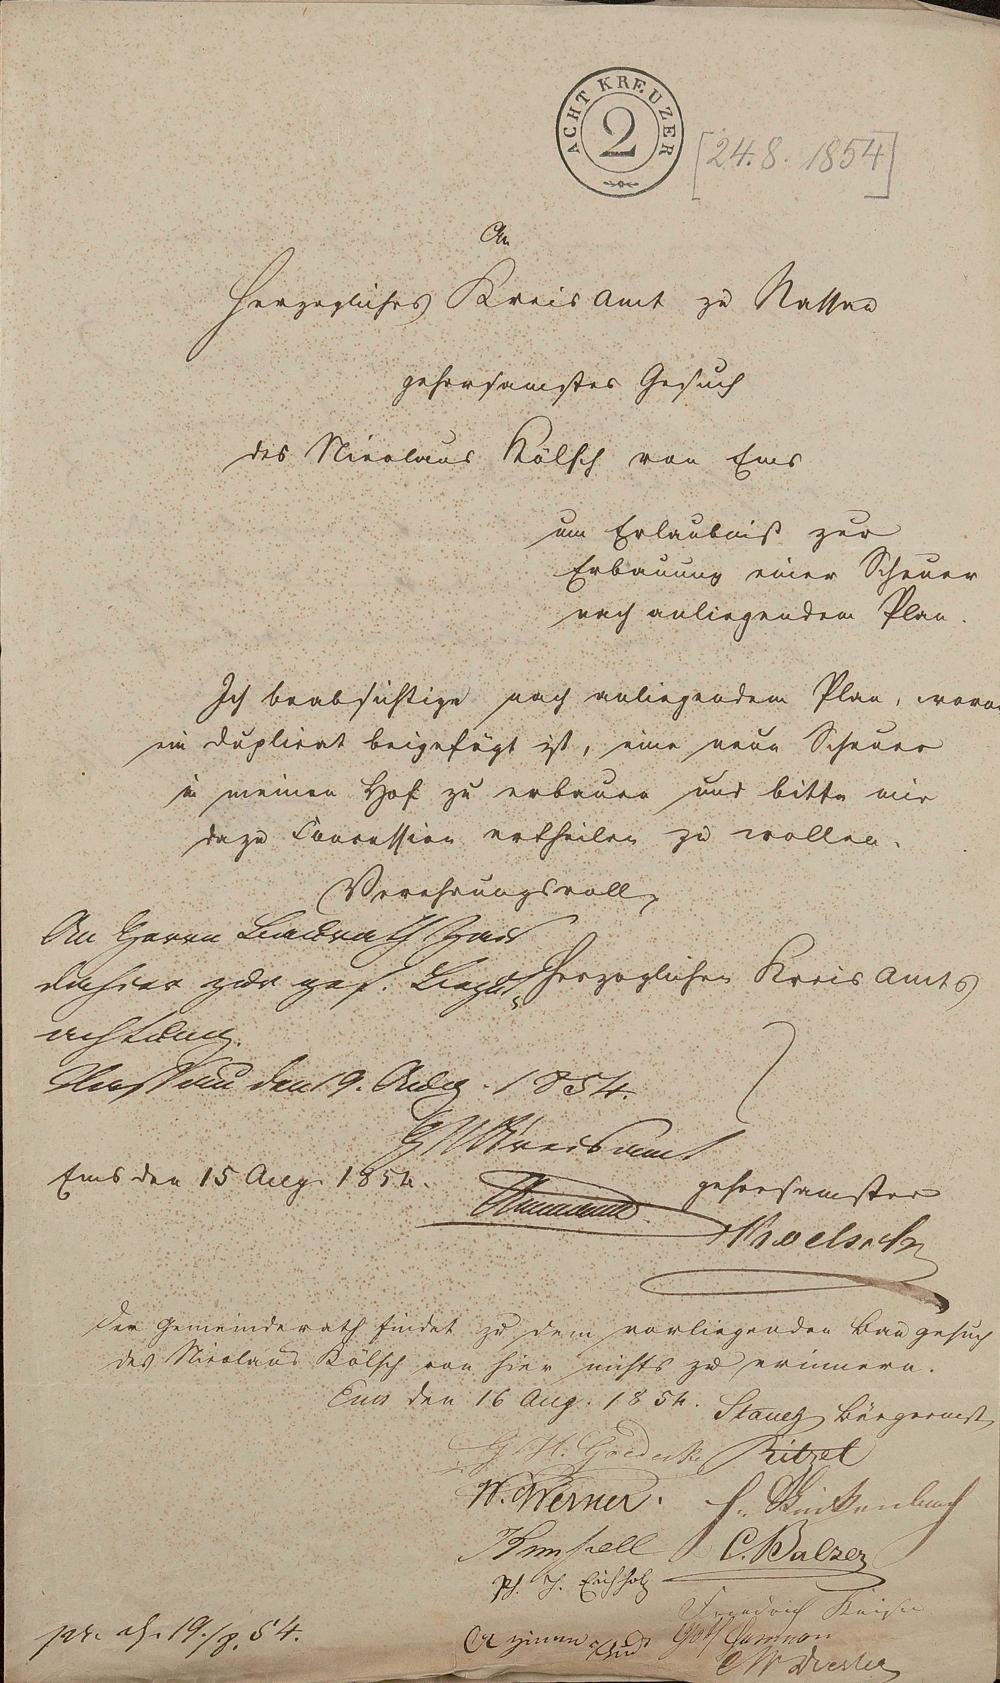 ACHT KREUZER
2
[24.8.1854]
An
Herzogliches Kreisamt zu Nassau
gehorsamstes Gesuch
des Nicolaus Kölsch von Ems
um Erlaubniß zur
Erbauung einer Scheuer
nach anliegendem Plan.
Ich beabsichtige nach anliegendem Plan, wovon
ein Duplicat beigefügt ist, eine neue Scheuer
in meinen Hof zu erbauen und bitte mir
dazu Concession ertheilen zu wollen.
Verehrungsvoll
An Herrn Baurath
dahier zur gef. Begut-
achtung.
Nassau den 19. Aug. 1854.
Kreisamt
Herzoglichen Kreisamts
Ems den 15 Aug. 1854.
gehorsamster
Koelsch
Der Gemeinderath findet zu dem vorliegenden Baugesuch
des Nicolaus Kölsch von hier nichts zu erinnern.
Ems den 16 Aug. 1854.
Bürgermst.
W. Werner.
C. Balzer
Ph. Eichholz
Friedrich
19./8. 54.